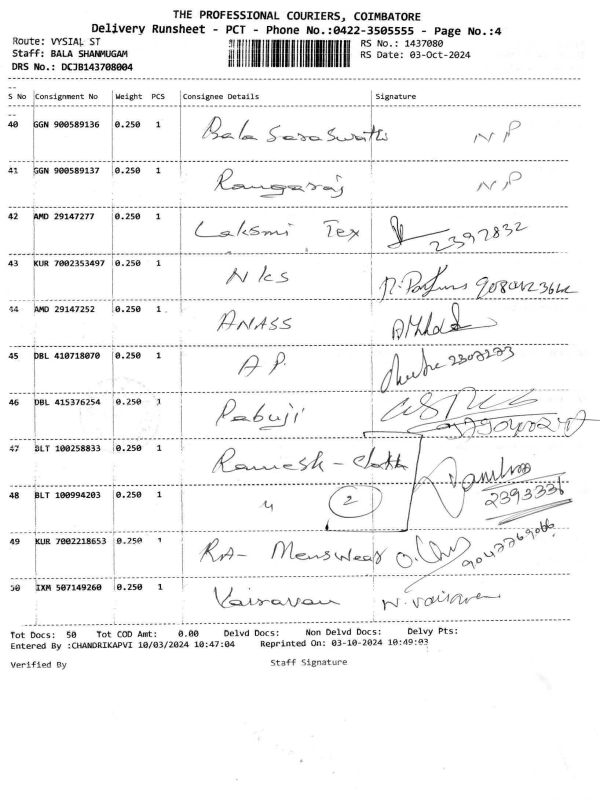 THE PROFESSIONAL COURIERS, COIMBATORE
Delivery Runsheet - PCT - Phone No.:0422-3505555 - Page No.:4
Route: VYSIAL ST RS No.: 1437080
Staff: BALA SHANMUGAM RS Date: 03-Oct-2024
DRS No.: DCJB143708004
S No Consignment No Weight PCS Consignee Details Signature
40 GGN 900589136 0.250 1 Bala Saraswathi NP
41 GGN 900589137 0.250 1 Rangaraj NP
42 AMD 29147277 0.250 1 Laksmi Tex 2397832
43 KUR 7002353497 0.250 1 NKS
44 AMD 29147252 0.250 1 ANASS
45 DBL 410718070 0.250 1 A P.
46 DBL 415376254 0.250 1 Pabuji
47 BLT 100258833 0.250 1 Ramesh -
48 BLT 100994203 0.250 1 " 2 2393336
49 KUR 7002218653 0.250 1 RA- Menswear
50 IXM 507149260 0.250 1 Vairavan
Tot Docs: 50 Tot COD Amt: 0.00 Delvd Docs: Non Delvd Docs: Delvy Pts:
Entered By :CHANDRIKAPVI 10/03/2024 10:47:04 Reprinted On: 03-10-2024 10:49:03
Verified By Staff Signature